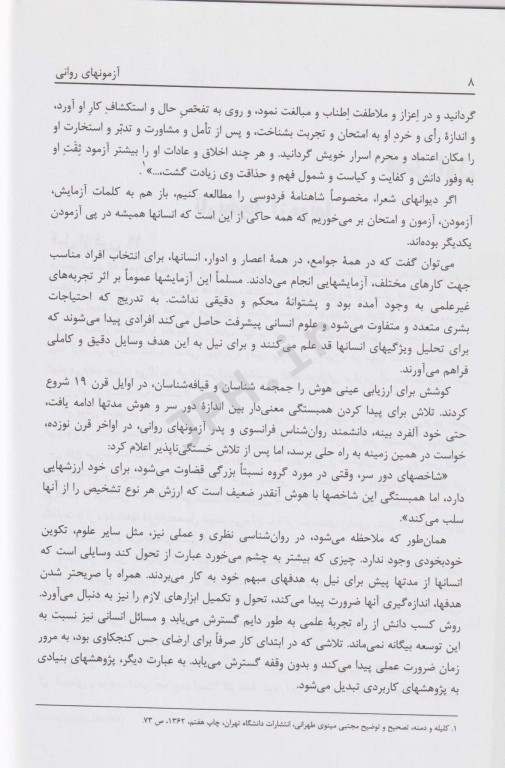 ۸ آزمونهای روانی
گردانید و در اِعزاز و ملاطفت اِطناب و مبالغت نمود، و روی به تفحّصِ حال و استکشافِ کارِ او آورد،
و اندازهٔ رأی و خردِ او به امتحان و تجربت بشناخت، و پس از تأمل و مشاورت و تدبّر و استخارت او
را مکان اعتماد و محرم اسرار خویش گردانید. و هر چند اخلاق و عادات او را بیشتر آزمود ثِقَتِ او
به وفور دانش و کفایت و کیاست و شمول فهم و حذاقت وی زیادت گشت،...»۱.
اگر دیوانهای شعرا، مخصوصاً شاهنامهٔ فردوسی را مطالعه کنیم، باز هم به کلمات آزمایش،
آزمودن، آزمون و امتحان بر می‌خوریم که همه حاکی از این است که انسانها همیشه در پی آزمودن
یکدیگر بوده‌اند.
می‌توان گفت که در همهٔ جوامع، در همهٔ اعصار و ادوار، انسانها، برای انتخاب افراد مناسب
جهت کارهای مختلف، آزمایشهایی انجام می‌دادند. مسلماً این آزمایشها عموماً بر اثر تجربه‌های
غیرعلمی به وجود آمده بود و پشتوانهٔ محکم و دقیقی نداشت. به تدریج که احتیاجات
بشری متعدد و متفاوت می‌شود و علوم انسانی پیشرفت حاصل می‌کند افرادی پیدا می‌شوند که
برای تحلیل ویژگیهای انسانها قد علم می‌کنند و برای نیل به این هدف وسایل دقیق و کاملی
فراهم می‌آورند.
کوشش برای ارزیابی عینی هوش را جمجمه شناسان و قیافه‌شناسان، در اوایل قرن ۱۹ شروع
کردند. تلاش برای پیدا کردن همبستگی معنی‌دار بین اندازهٔ دور سر و هوش مدتها ادامه یافت،
حتی خود آلفرد بینه، دانشمند روان‌شناس فرانسوی و پدر آزمونهای روانی، در اواخر قرن نوزده،
خواست در همین زمینه به راه حلی برسد، اما پس از تلاش خستگی‌ناپذیر اعلام کرد:
«شاخصهای دور سر، وقتی در مورد گروه نسبتاً بزرگی قضاوت می‌شود، برای خود ارزشهایی
دارد، اما همبستگی این شاخصها با هوش آنقدر ضعیف است که ارزش هر نوع تشخیص را از آنها
سلب می‌کند».
همان‌طور که ملاحظه می‌شود، در روان‌شناسی نظری و عملی نیز، مثل سایر علوم، تکوین
خودبخودی وجود ندارد. چیزی که بیشتر به چشم می‌خورد عبارت از تحول کند وسایلی است که
انسانها از مدتها پیش برای نیل به هدفهای مبهم خود به کار می‌بردند. همراه با صریحتر شدن
هدفها، اندازه‌گیری آنها ضرورت پیدا می‌کند، تحول و تکمیل ابزارهای لازم را نیز به دنبال می‌آورد.
روش کسب دانش از راه تجربهٔ علمی به طور دایم گسترش می‌یابد و مسائل انسانی نیز نسبت به
این توسعه بیگانه نمی‌ماند. تلاشی که در ابتدای کار صرفاً برای ارضای حس کنجکاوی بود، به مرور
زمان ضرورت عملی پیدا می‌کند و بدون وقفه گسترش می‌یابد. به عبارت دیگر، پژوهشهای بنیادی
به پژوهشهای کاربردی تبدیل می‌شود.
۱. کلیله و دمنه، تصحیح و توضیح مجتبی مینوی طهرانی، انتشارات دانشگاه تهران، چاپ هفتم، ۱۳۶۲، ص ۷۳.